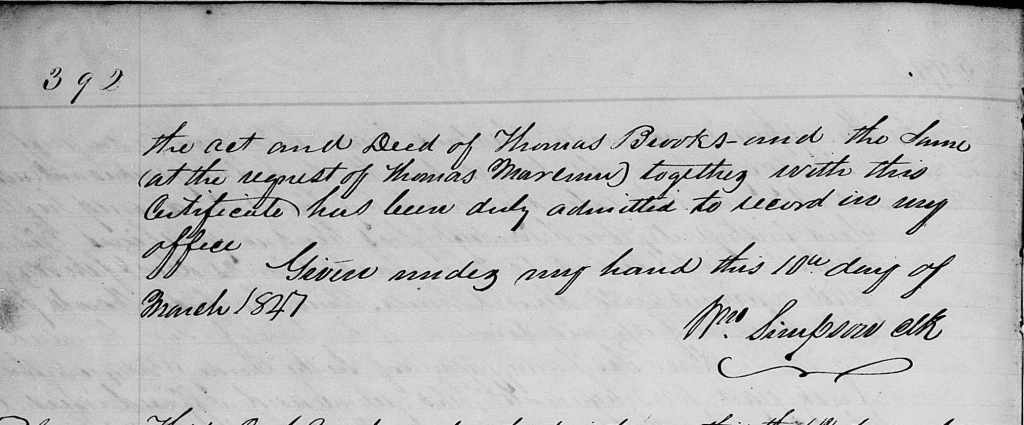 392
the act and Deed of Thomas Brooks - and the Same
(at the request of Thomas) together with this
Certificate has been duly admitted to record in my
office
Given under my hand this 10th day of
March 1847
Wm. Simpson Clk